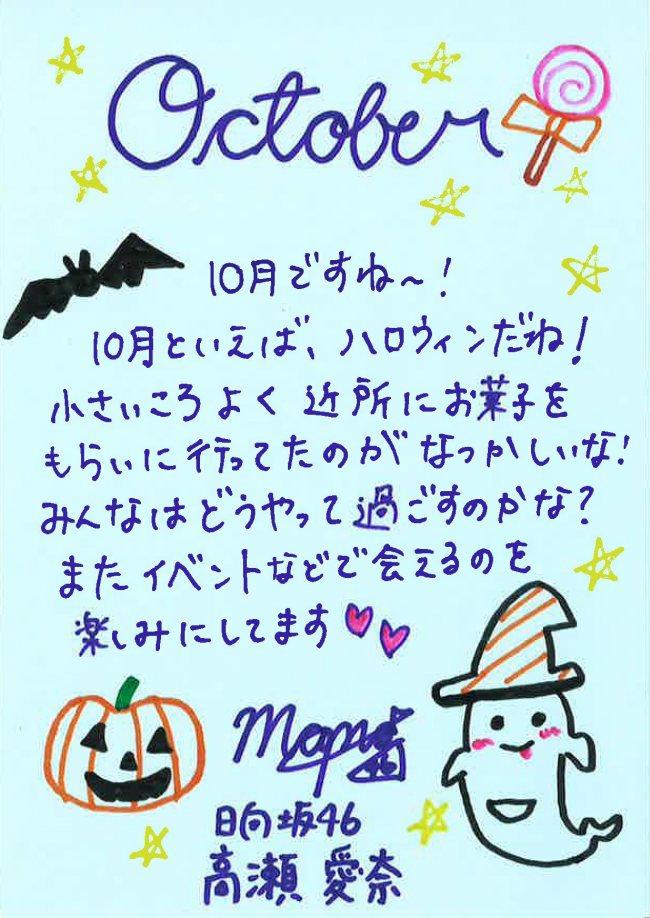 October
10月ですね〜!
10月といえば、ハロウィンだね!
小さいころよく近所にお菓子を
もらいに行ってたのがなつかしいな!
みんなはどうやって過ごすのかな?
またイベントなどで会えるのを
楽しみにしてます
日向坂46
高瀬愛奈